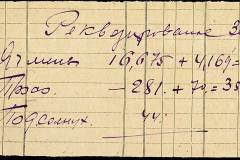 Реквизировано 3
Ячмень 16,675 + 4,169 =
Просо. - 281. + 70. = 35
Подсолнух. 44.